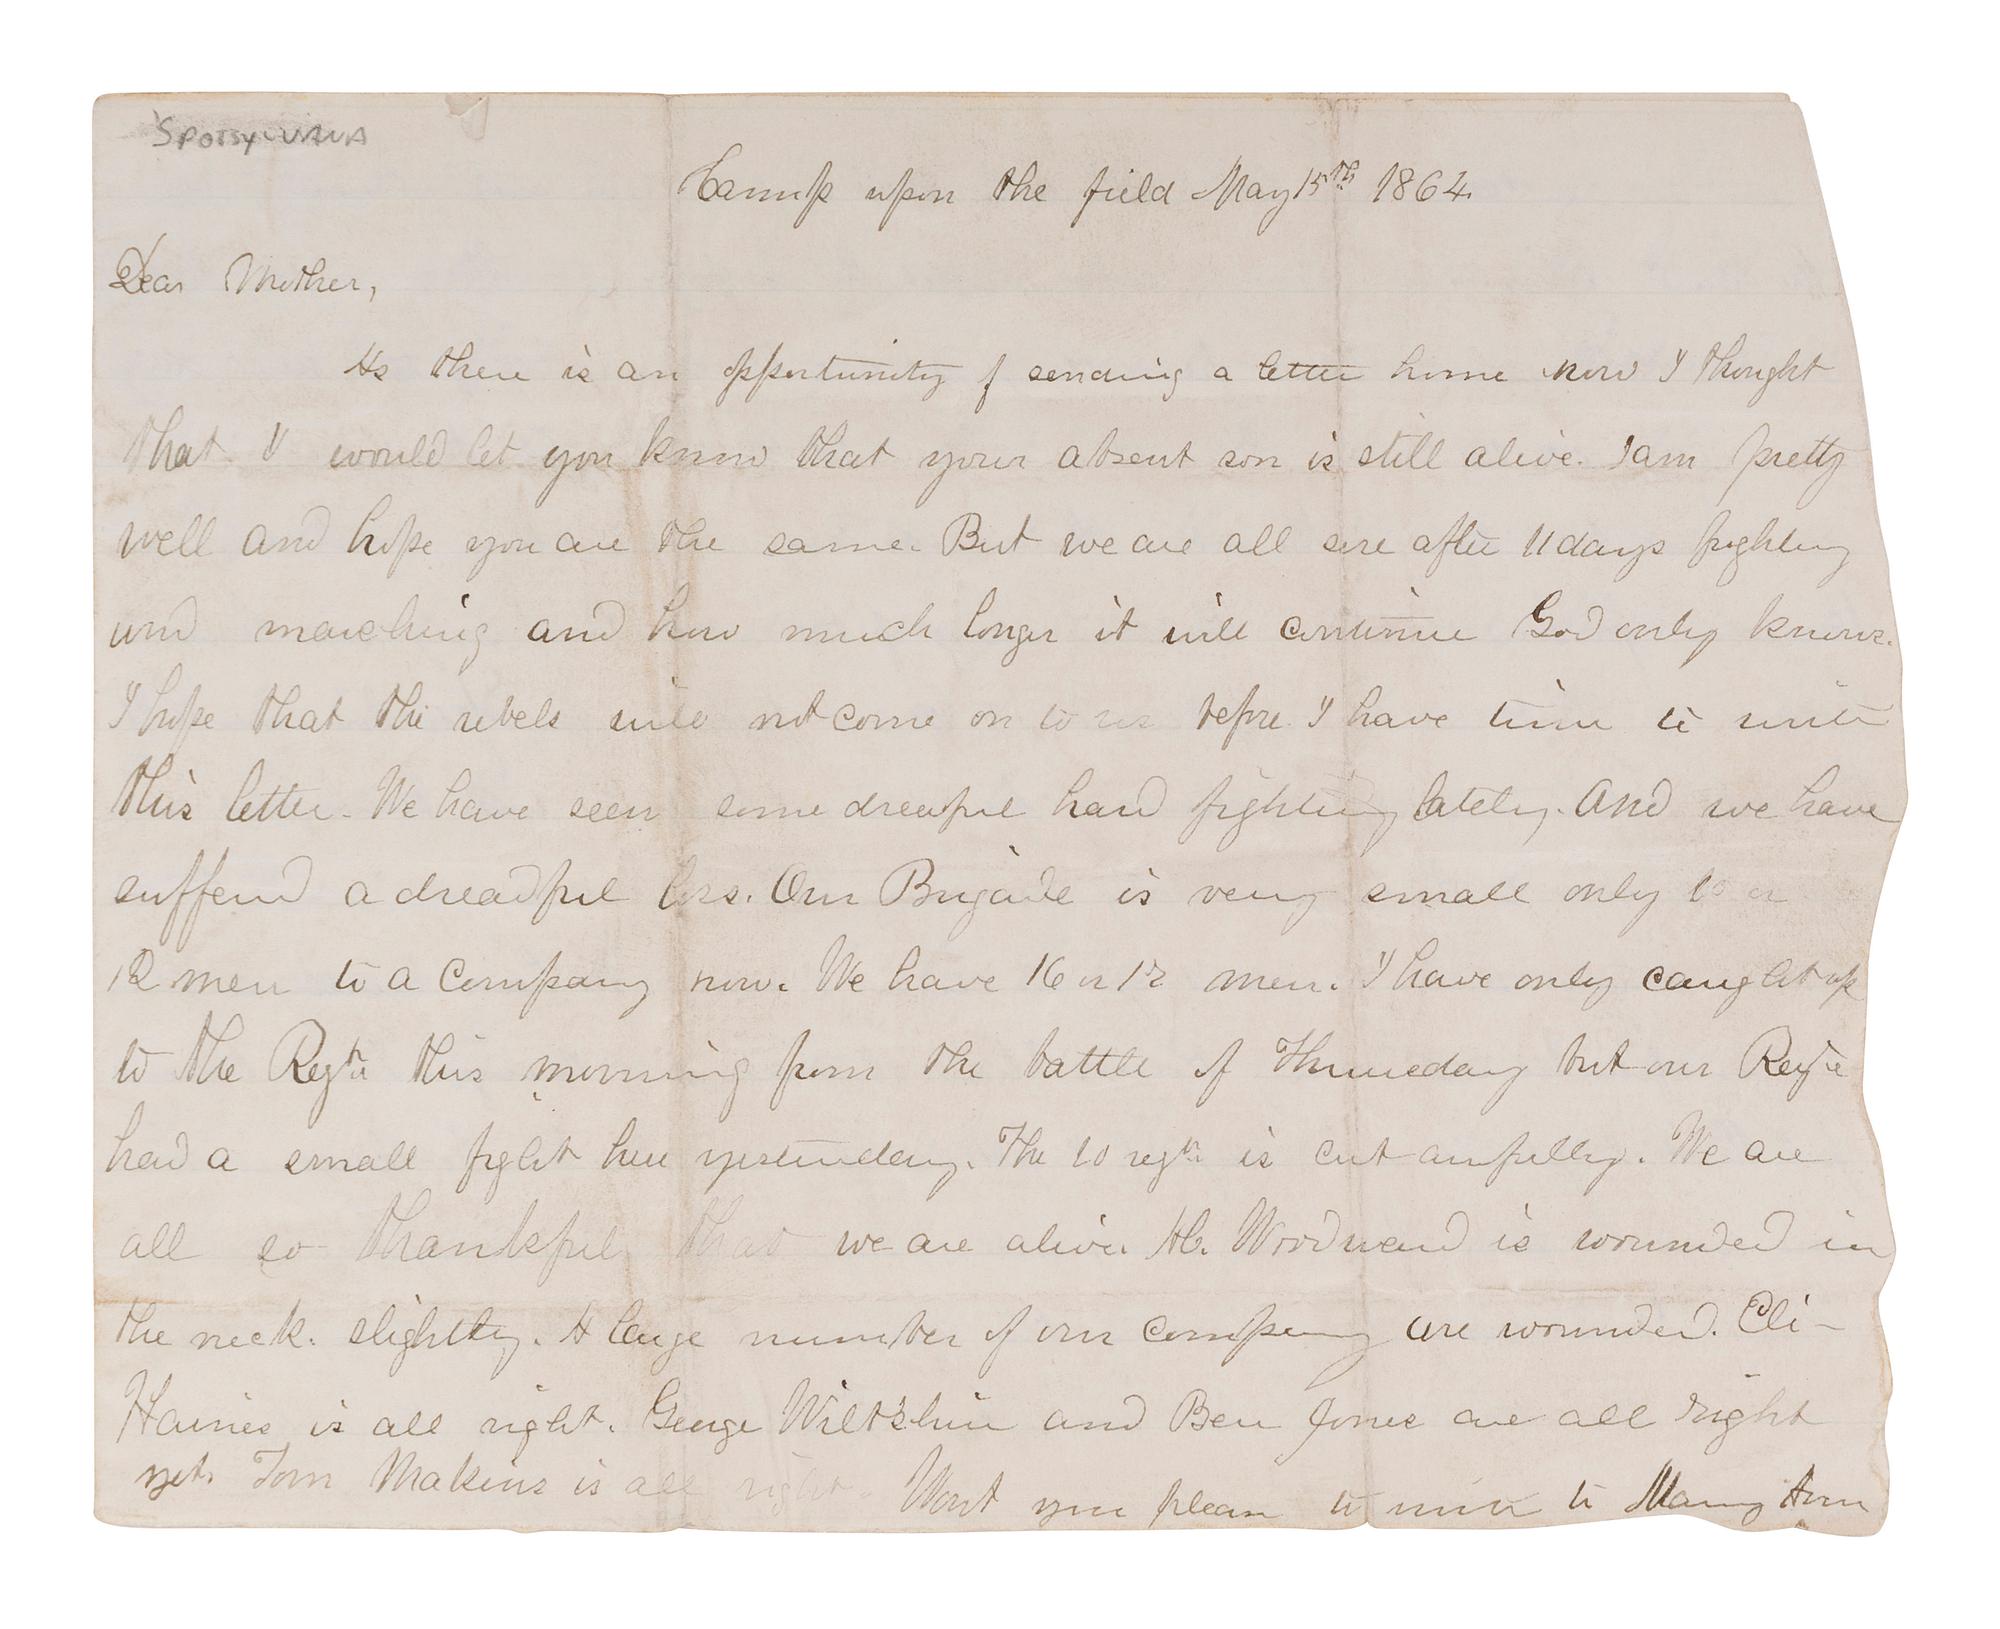 SPOTSYLVANIA
Camp upon the field May 15th 1864.
Dear Mother,
As there is an opportunity of sending a letter home now I thought
that I would let you know that your absent son is still alive. I am pretty
well and hope you are the same. But we are all sore after 11 days fighting
and marching and how much longer it will continue God only knows.
I hope that the rebels will not come on to us before I have time to write
this letter. We have seen some dreadful hard fighting lately. And we have
suffered a dreadful loss. Our Brigade is very small only 10 or
12 men to a Company now. We have 16 or 17 men. I have only caught up
to the Regt. this morning from the battle of Thursday but our Regt.
had a small fight here yesterday. The 10 regt. is cut awfully. We are
all so thankful that we are alive. Woodward is wounded in
the neck. slightly. A large number of our company are wounded. Eli-
Haines is all right. George Wiltshire and Ben Jones are all right
yet. Tom Makins is all right. Wont you please to write to Mary Ann